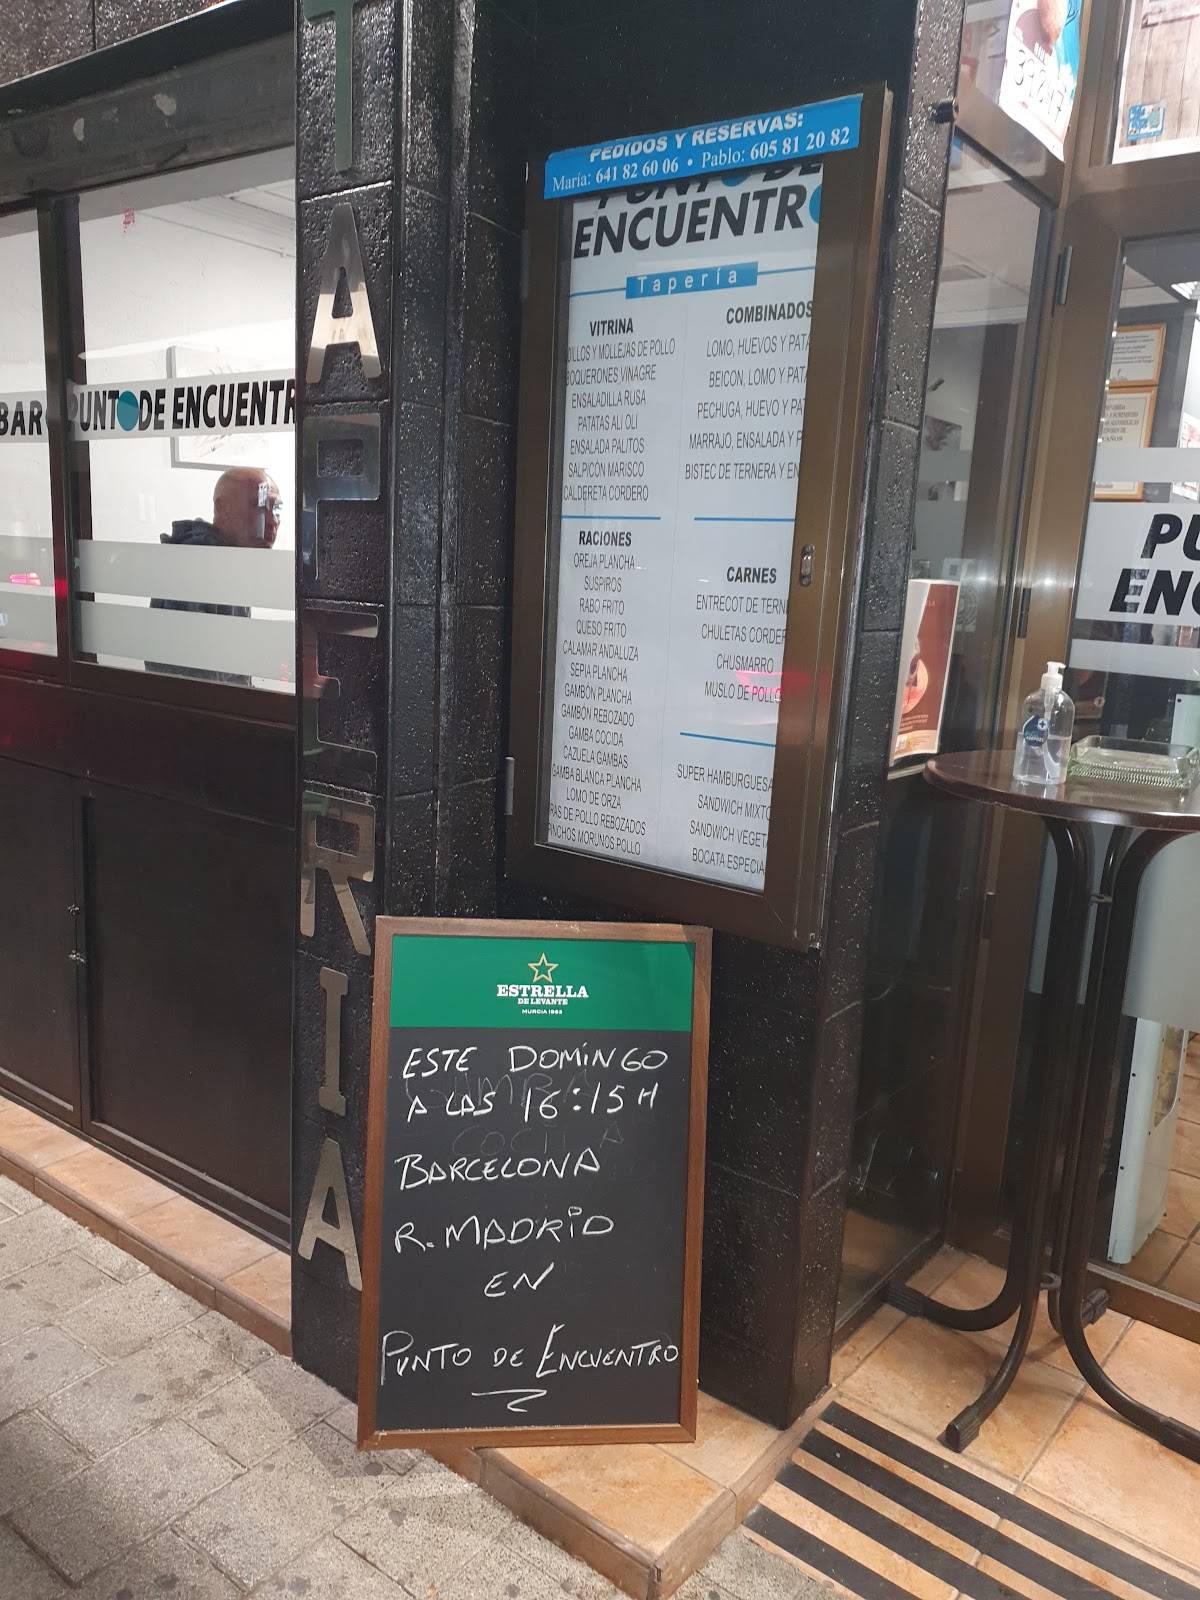 TAPERIA
BAR PUNTO DE ENCUENTR
PEDIDOS Y RESERVAS:
María: 641 82 60 06 • Pablo: 605 81 20 82
PUNTO DE
ENCUENTRO
Tapería
VITRINA
DILLOS Y MOLLEJAS DE POLLO
BOQUERONES VINAGRE
ENSALADILLA RUSA
PATATAS ALI OLI
ENSALADA PALITOS
SALPICÓN MARISCO
CALDERETA CORDERO
RACIONES
OREJA PLANCHA
SUSPIROS
RABO FRITO
QUESO FRITO
CALAMAR ANDALUZA
SEPIA PLANCHA
GAMBÓN PLANCHA
GAMBÓN REBOZADO
GAMBA COCIDA
CAZUELA GAMBAS
GAMBA BLANCA PLANCHA
LOMO DE ORZA
RAS DE POLLO REBOZADOS
PINCHOS MORUNOS POLLO
COMBINADOS
LOMO, HUEVOS Y PATA
BEICON, LOMO Y PATA
PECHUGA, HUEVO Y PAT
MARRAJO, ENSALADA Y P
BISTEC DE TERNERA Y EN
CARNES
ENTRECOT DE TERN
CHULETAS CORDER
CHUSMARRO
MUSLO DE POLLO
SUPER HAMBURGUESA
SANDWICH MIXTO
SANDWICH VEGETA
BOCATA ESPECIA
ESTRELLA
DE LEVANTE
MURCIA 1963
ESTE DOMINGO
A LAS 16:15 H
BARCELONA
R. MADRID
EN
PUNTO DE ENCUENTRO
PU
ENC